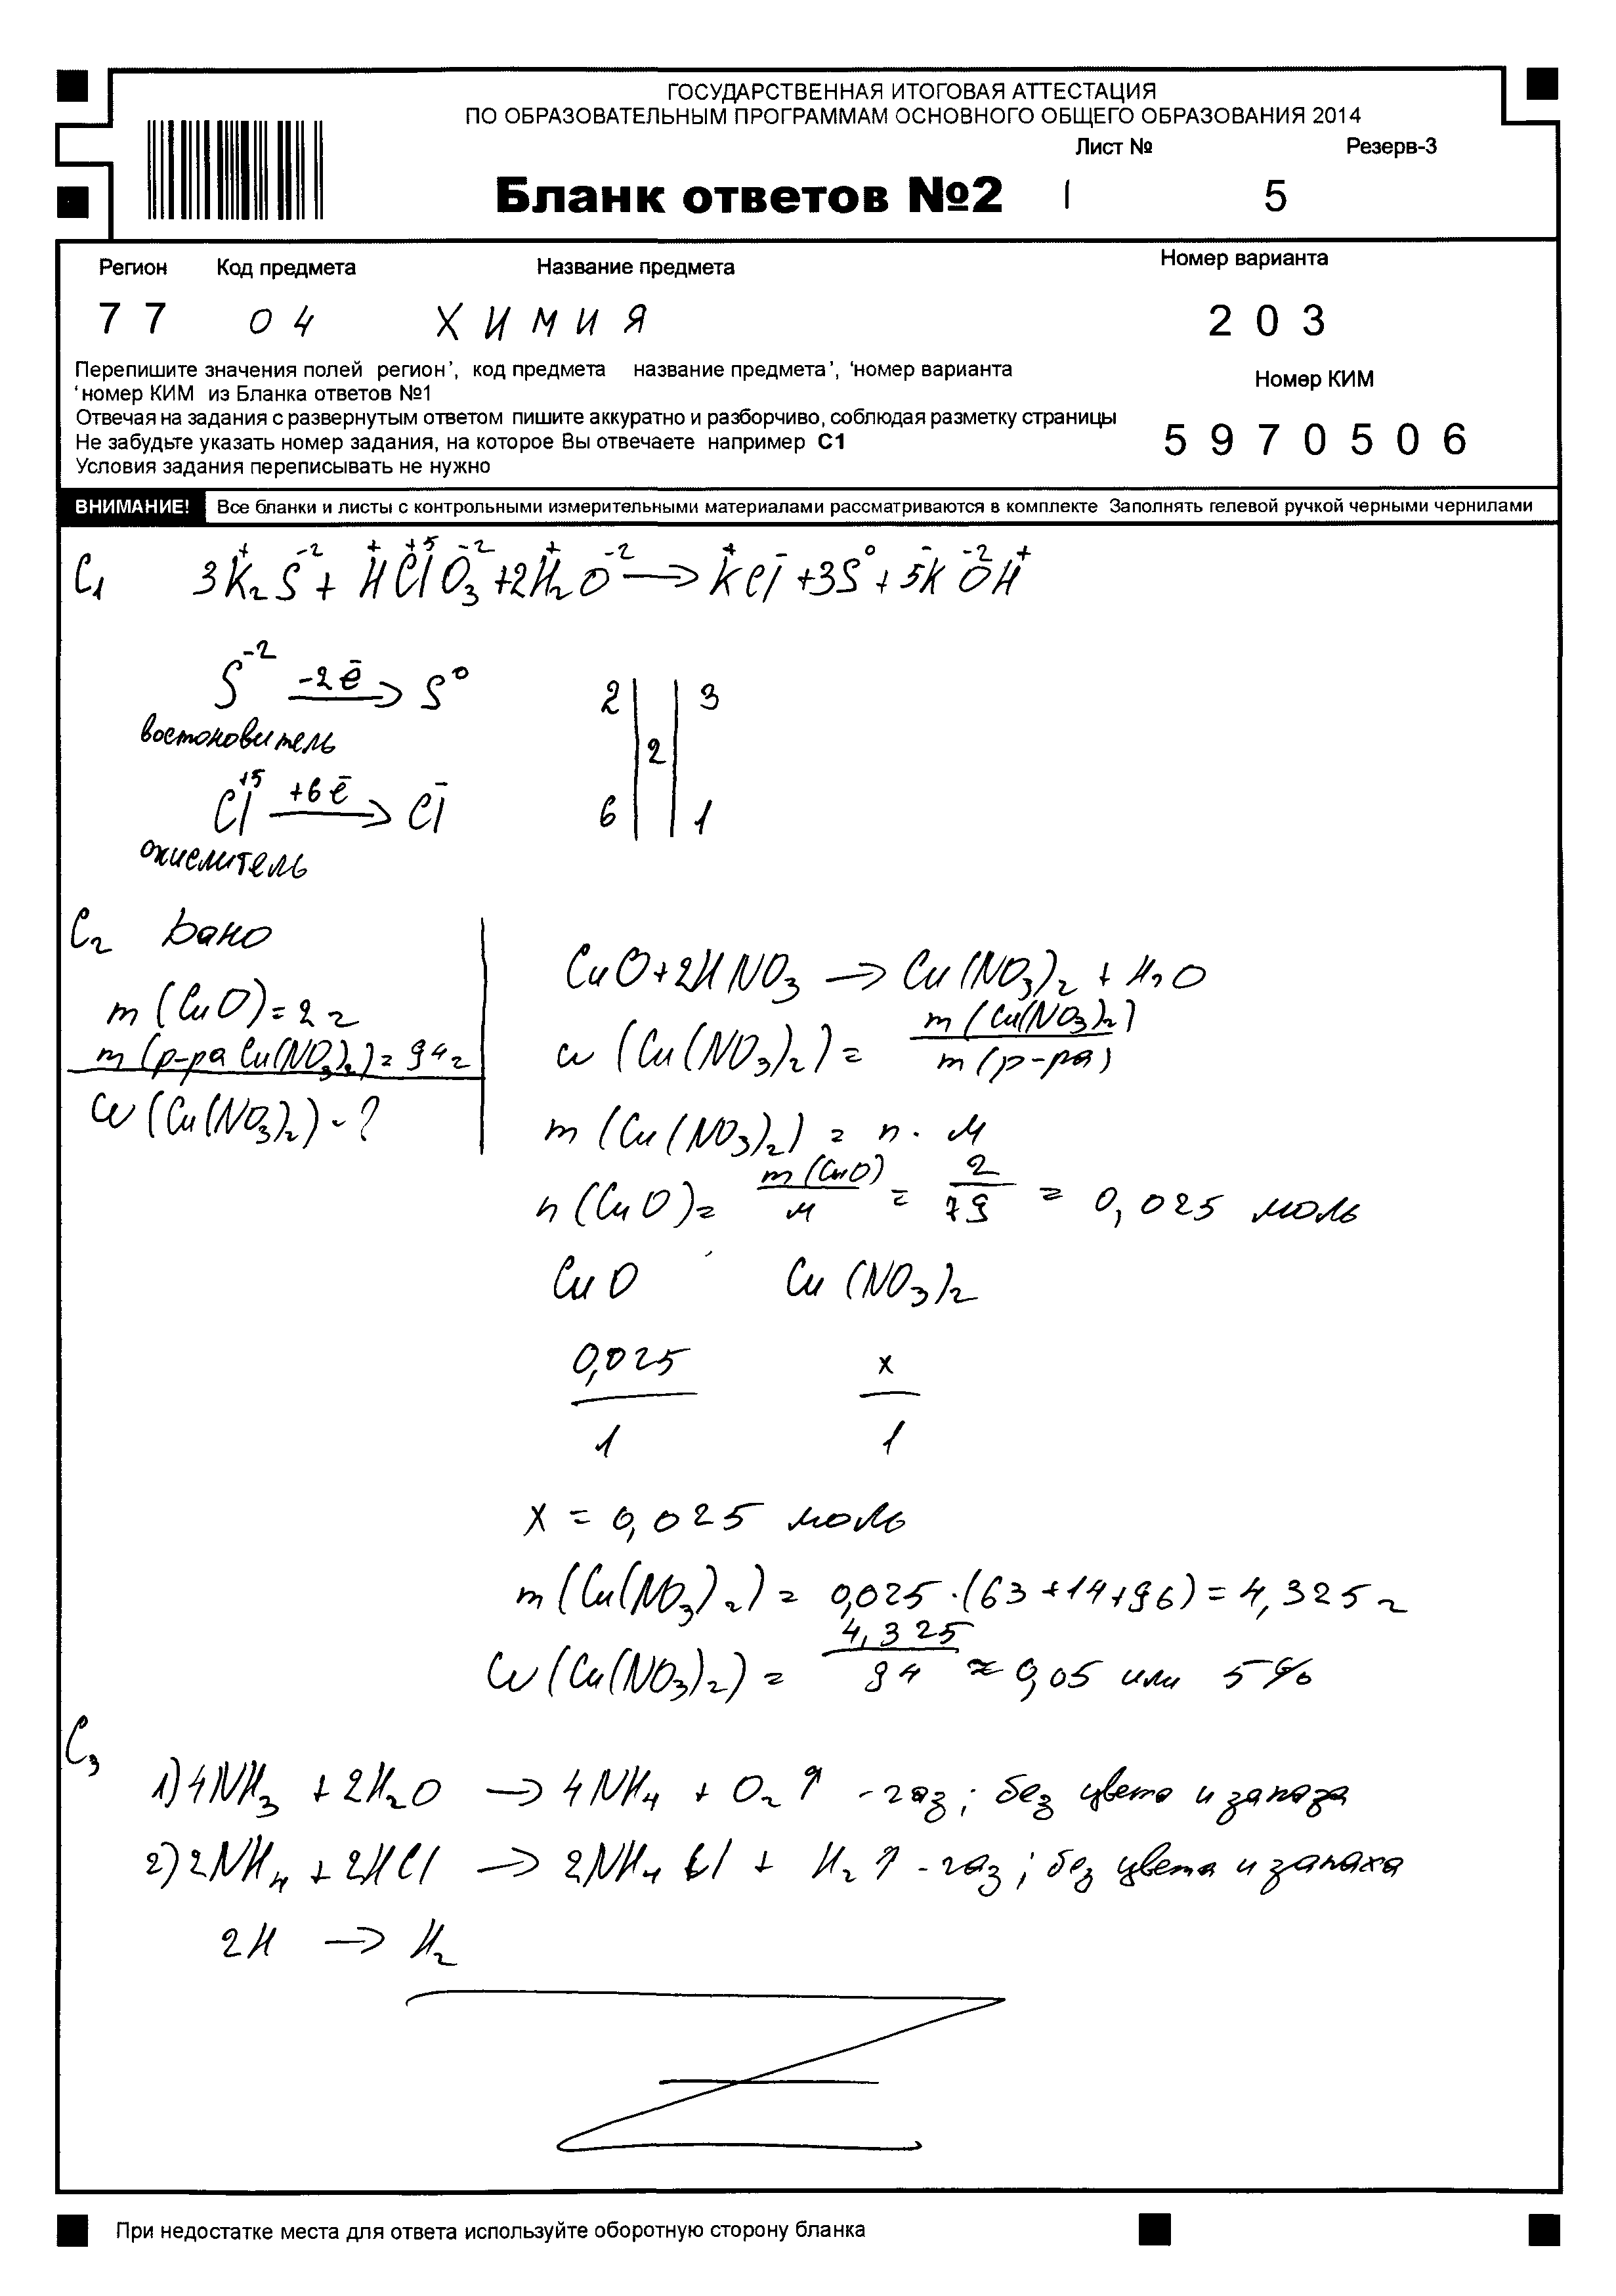 ГОСУДАРСТВЕННАЯ ИТОГОВАЯ АТТЕСТАЦИЯ
ПО ОБРАЗОВАТЕЛЬНЫМ ПРОГРАММАМ ОСНОВНОГО ОБЩЕГО ОБРАЗОВАНИЯ 2014
Лист № Резерв-3
Бланк ответов №2 1 5
Регион Код предмета Название предмета Номер варианта
77 04 ХИМИЯ 203
Перепишите значения полей регион', код предмета название предмета', 'номер варианта
'номер КИМ из Бланка ответов №1
Номер КИМ
Отвечая на задания с развернутым ответом пишите аккуратно и разборчиво, соблюдая разметку страницы
Не забудьте указать номер задания, на которое Вы отвечаете например С1
5970506
Условия задания переписывать не нужно
ВНИМАНИЕ! Все бланки и листы с контрольными измерительными материалами рассматриваются в комплекте Заполнять гелевой ручкой черными чернилами
C₁ 3K⁺₂S⁻² + H⁺Cl⁺⁵O⁻²₃ + 2H⁺₂O⁻² → K⁺Cl⁻ + 3S⁰ + 5K⁻O⁻²H⁺
S⁻² -2ē → S⁰ 2 | | 3
востоновитель | 2 |
Cl⁺⁵ +6ē → Cl⁻ 6 | | 1
окислитель
C₂ Дано
CuO + 2HNO₃ → Cu(NO₃)₂ + H₂O
m(CuO) = 2 г
m(р-ра Cu(NO₃)₂) = 94 г
ω(Cu(NO₃)₂) - ?
ω(Cu(NO₃)₂) = m(Cu(NO₃)₂) / m(р-ра)
m(Cu(NO₃)₂) = n · M
n(CuO) = m(CuO) / M = 2 / 79 = 0,025 моль
CuO Cu(NO₃)₂
0,025 / 1 x / 1
x = 0,025 моль
m(Cu(NO₃)₂) = 0,025 · (63 + 14 + 96) = 4,325 г
ω(Cu(NO₃)₂) = 4,325 / 94 ≈ 0,05 или 5%
C₃
1) 4NH₃ + 2H₂O → 4NH₄ + O₂↑ - газ; без цвета и запаха
2) 2NH₄ + 2HCl → 2NH₄Cl + H₂↑ - газ; без цвета и запаха
2H → H₂
При недостатке места для ответа используйте оборотную сторону бланка